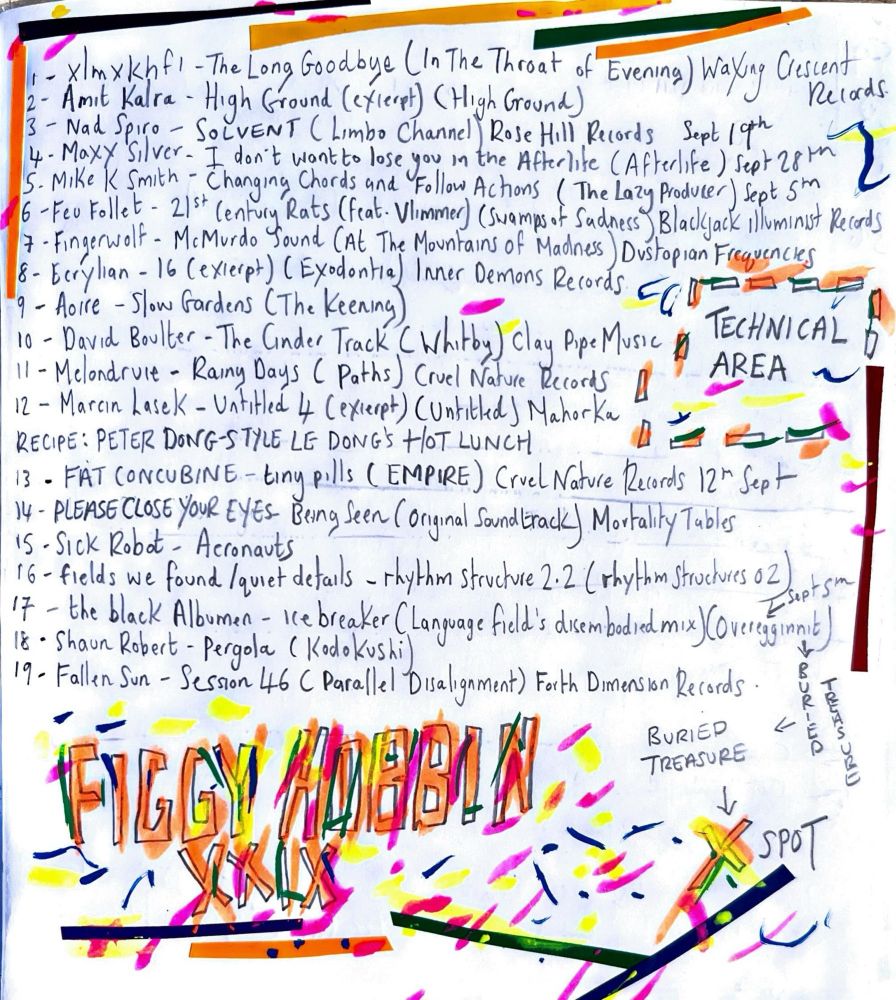 1 - xlmxkhfi - The Long Goodbye (In The Throat of Evening) Waxing Crescent
Records
2 - Amit Kalra - High Ground (exierpt) (High Ground)
3 - Nad Spiro - SOLVENT (Limbo Channel) Rose Hill Records Sept 19th
4 - Maxx Silver - I don't want to lose you in the Afterlife (Afterlife) Sept 28th
5 - Mike K Smith - Changing Chords and Follow Actions (The Lazy Producer) Sept 5th
6 - Feu Follet - 21st Century Rats (feat. Vlimmer) (Swamps of Sadness) Blackjack illuminist Records
7 - Fingerwolf - McMurdo Sound (At The Mountains of Madness) Dustopian Frequencies
8 - Ecrylian - 16 (exierpt) (Exodontia) Inner Demons Records
9 - Aoire - Slow Gardens (The Keening)
10 - David Boulter - The Cinder Track (Whitby) Clay Pipe Music
11 - Melondruie - Rainy Days (Paths) Cruel Nature Records
12 - Marcin Lasek - Untitled 4 (exierpt) (Untitled) Mahorka
TECHNICAL
AREA
RECIPE: PETER DONG-STYLE LE DONG'S HOT LUNCH
13 - FAT CONCUBINE - tiny pills (EMPIRE) Cruel Nature Records 12th Sept
14 - PLEASE CLOSE YOUR EYES - Being Seen (Original Soundtrack) Mortality Tables
15 - Sick Robot - Aeronauts
16 - fields we found / quiet details - rhythm structure 2.2 (rhythm structures 02)
Sept 5th
17 - the black Albumen - ice breaker (Language field's disembodied mix) (Overegginnit)
18 - Shaun Robert - Pergola (Kodokushi)
19 - Fallen Sun - Session 46 (Parallel Disalignment) Forth Dimension Records.
BURIED
TREASURE
BURIED
TREASURE
FIGGY HOBBIN
XXIX
X SPOT